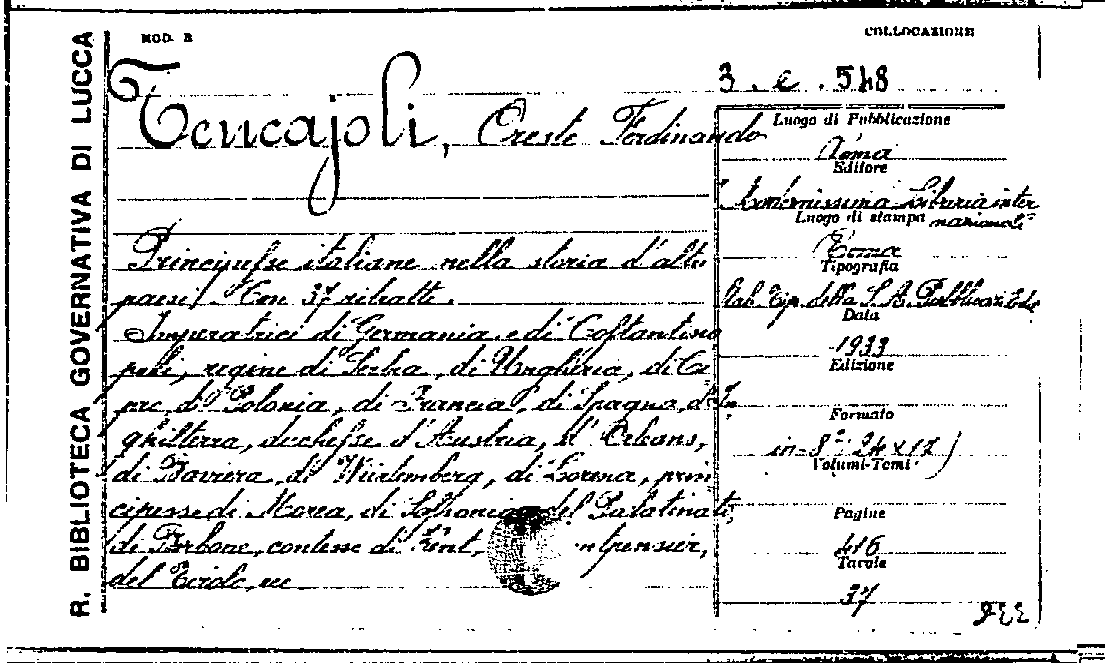 R. BIBLIOTECA GOVERNATIVA DI LUCCA
MOD. B
COLLOCAZIONE
3. e. 548
Tencajoli, Oreste Ferdinando
Principesse italiane nella storia d'altri
paesi/ Con 37 ritratti.
Imperatrici di Germania e di Costantino
poli, regine di Serbia, di Ungheria, di Ci
pro, di Polonia, di Francia, di Spagna, d'In
ghilterra, duchesse d'Austria, d'Orleans,
di Baviera, di Würtemberg, di Lorena, prin
cipesse di Morea, di del Palatinato,
di Borbone, contesse di Kent, ntpensier,
del Tirolo, ecc
Luogo di Pubblicazione
Roma
Editore
Libreria inter
nazionale
Luogo di stampa
Roma
Tipografia
Lab. Tip. della S. A.
Data
1933
Edizione
Formato
in-8° 24 x 17)
Volumi-Tomi
Pagine
416
Tavole
37